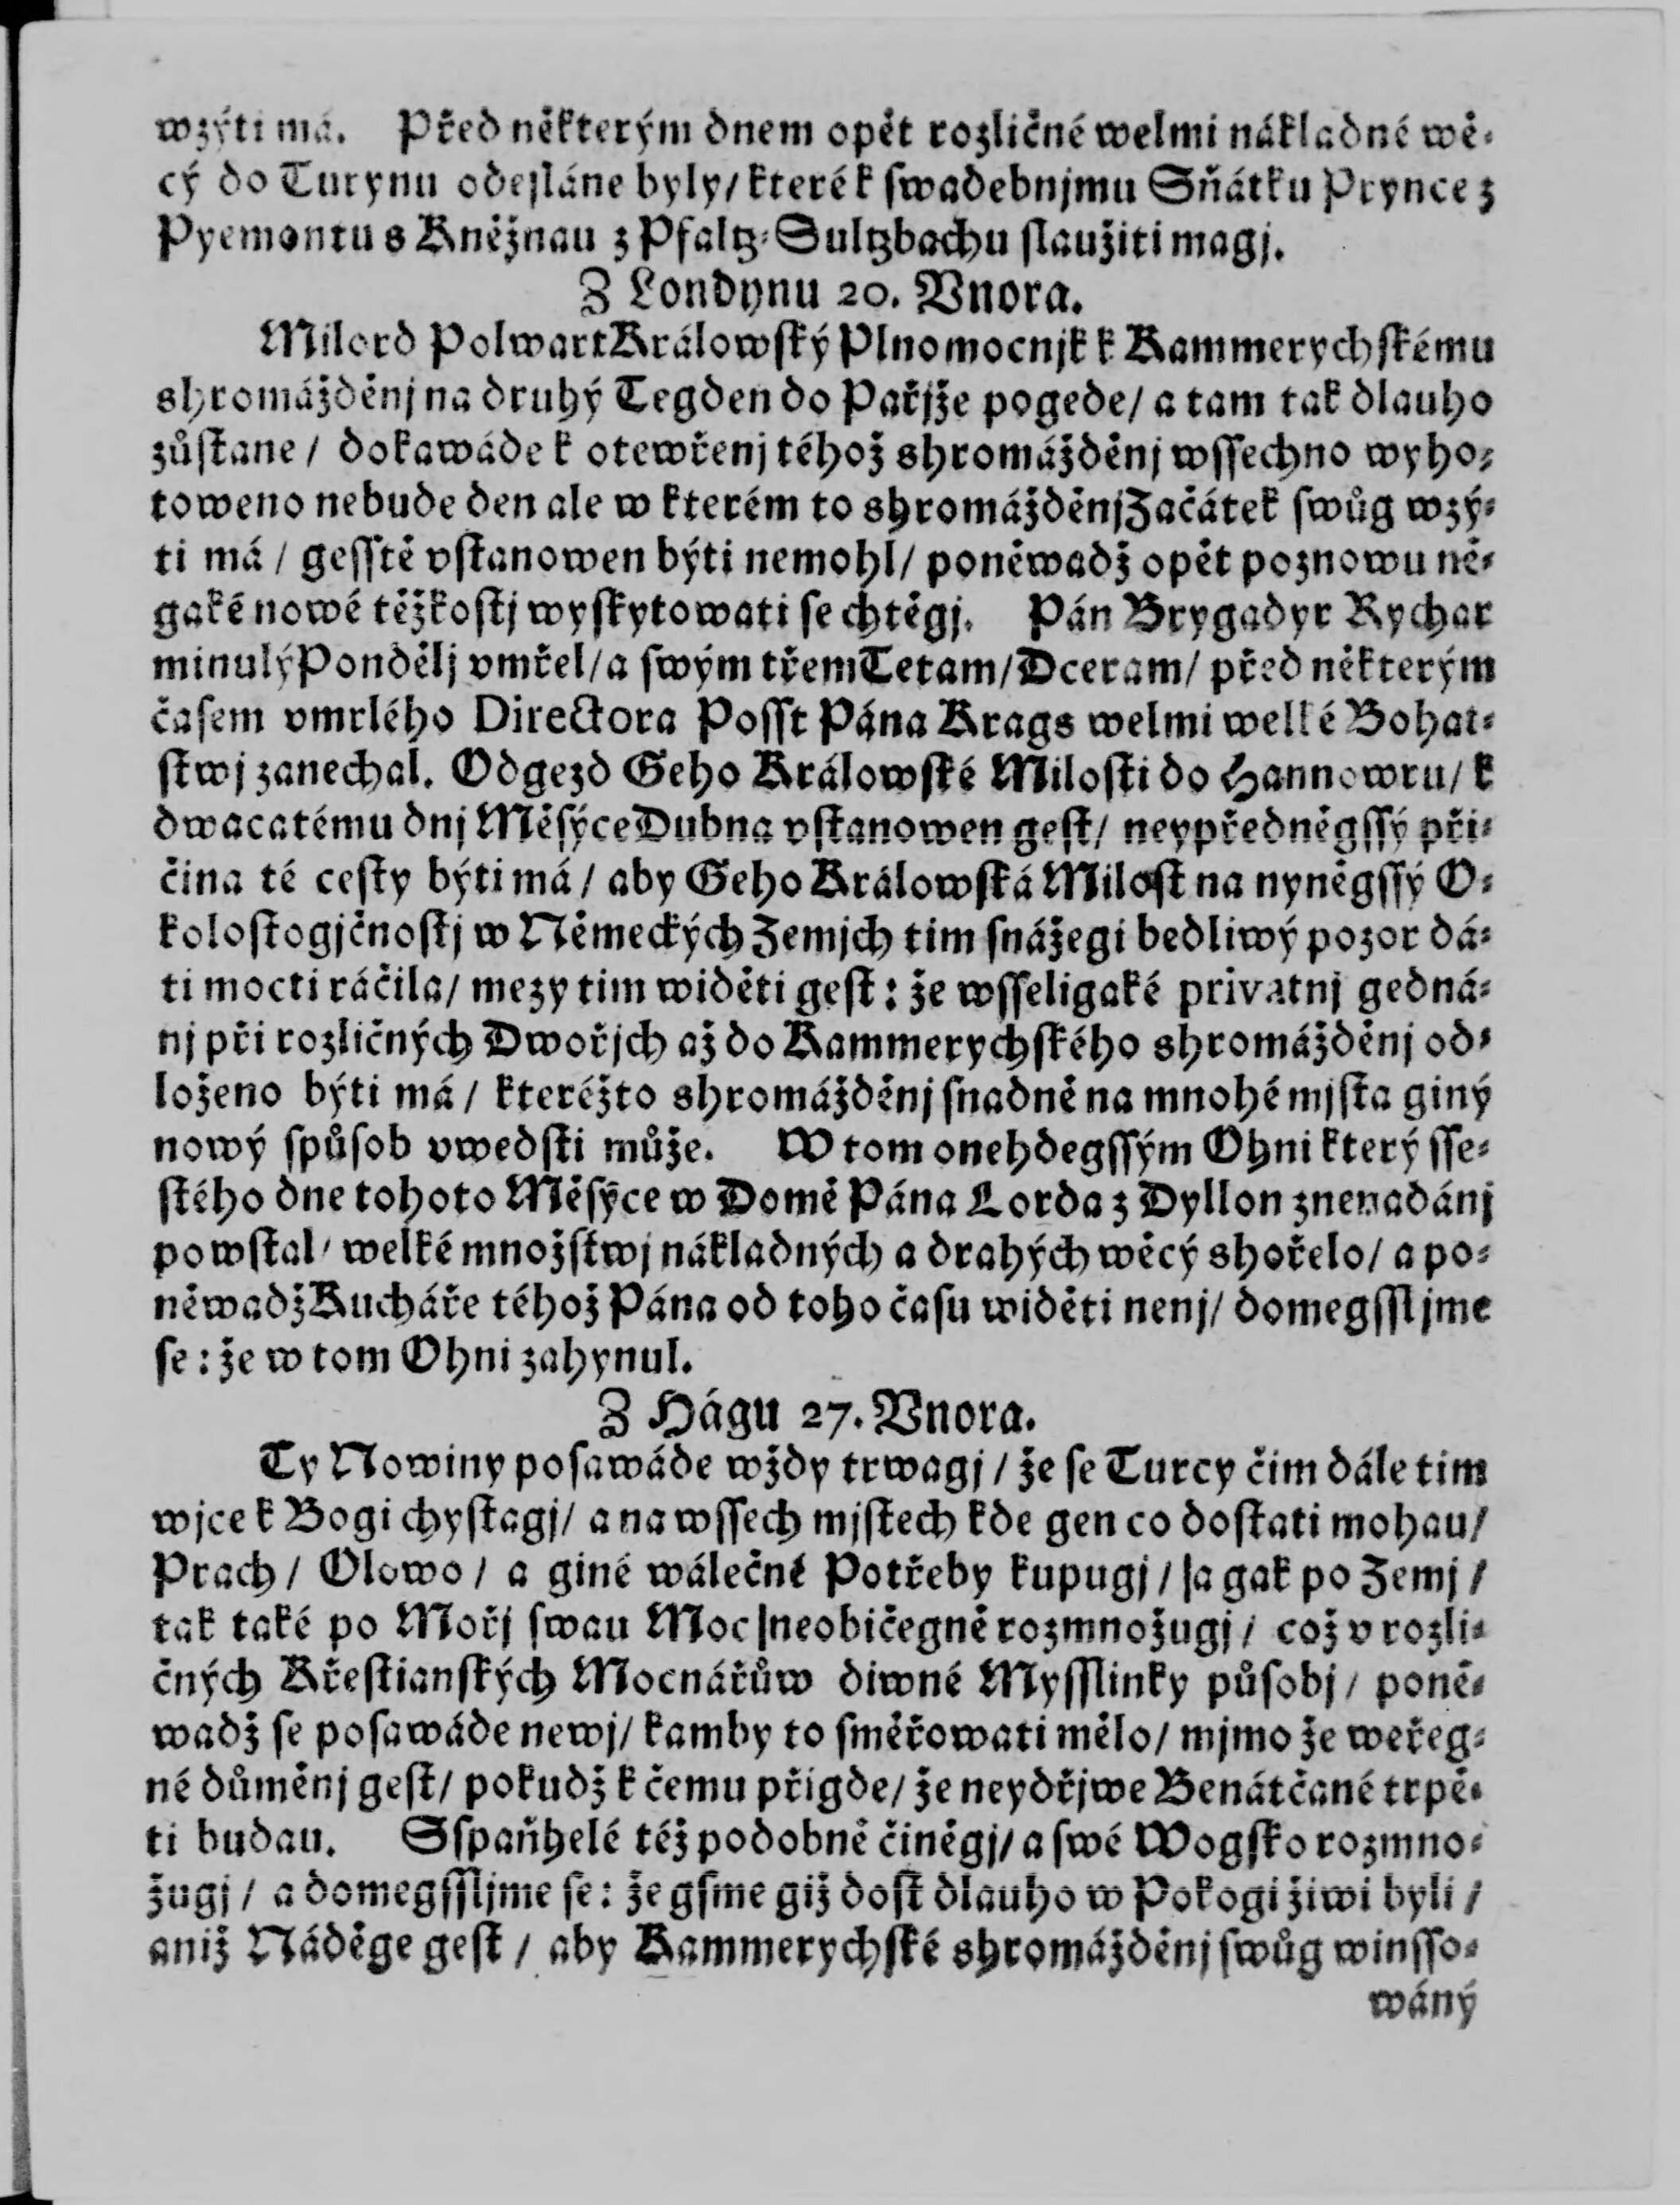 wzýti má. Před některým dnem opět rozličné welmi nákladné wě-
cý do Turynu odeſláne byly/ které k ſwadebnjmu Sňátku Prynce z
Pyemontu s Kněžnau z Pfaltz-Sultzbachu ſlaužiti magj.
Z Londynu 20. Vnora.
Milord Polwart Králowſký Plnomocnjk k Kammerychſkému
shromážděnj na druhý Tegden do Pařjže pogede/ a tam tak dlauho
zůſtane/ dokawáde k otewřenj téhož shromážděnj wſſechno wyho-
toweno nebude den ale w kterém to shromážděnj Začátek ſwůg wzý-
ti má/ geſſtě vſtanowen býti nemohl/ poněwadž opět poznowu ně-
gaké nowé těžkoſtj wyſkytowati ſe chtěgj. Pán Brygadyr Rychar
minulý Pondělj vmřel/ a ſwým třem Tetam/ Dceram/ před některým
čaſem vmrlého Directora Poſſt Pána Krags welmi welké Bohat-
ſtwj zanechal. Odgezd Geho Králowſké Miloſti do Hannowru/ k
dwacatému dnj Měſýce Dubna vſtanowen geſt/ neypředněgſſý při-
čina té ceſty býti má/ aby Geho Králowſká Miloſt na nyněgſſý O-
koloſtogjčnoſtj w Německých Zemjch tim ſnážegi bedliwý pozor dá-
ti mocti ráčila/ mezy tim widěti geſt: že wſſeligaké privatnj gedná-
nj při rozličných Dwořjch až do Kammerychſkého shromážděnj od-
loženo býti má/ kteréžto shromážděnj ſnadně na mnohé mjſta giný
nowý ſpůſob vwedſti může. W tom onehdegſſým Ohni který ſſe-
ſtého dne tohoto Měſýce w Domě Pána Lorda z Dyllon znenadánj
powſtal/ welké množſtwj nákladných a drahých wěcý shořelo/ a po-
něwadž Kucháře téhož Pána od toho čaſu widěti nenj/ domegſſljme
ſe: že w tom Ohni zahynul.
Z Hágu 27. Vnora.
Ty Nowiny poſawáde wždy trwagj/ že ſe Turcy čim dále tim
wjce k Bogi chyſtagj/ a na wſſech mjſtech kde gen co doſtati mohau/
Prach/ Olowo/ a giné wálečné Potřeby kupugj/ a gak po Zemj/
tak také po Mořj ſwau Moc neobičegně rozmnožugj/ což v rozli-
čných Křeſtianſkých Mocnářůw diwné Myſſlinky půſobj/ poně-
wadž ſe poſawáde newj/ kamby to ſměřowati mělo/ mjmo že weřeg-
né důměnj geſt/ pokudž k čemu přigde/ že neydřjwe Benátčané trpě-
ti budau. Sſpaňhelé též podobně činěgj/ a ſwé Wogſko rozmno-
žugj/ a domegſſljme ſe: že gſme giž doſt dlauho w Pokogi žiwi byli/
aniž Náděge geſt/ aby Kammerychſké shromážděnj ſwůg winſſo-
wáný